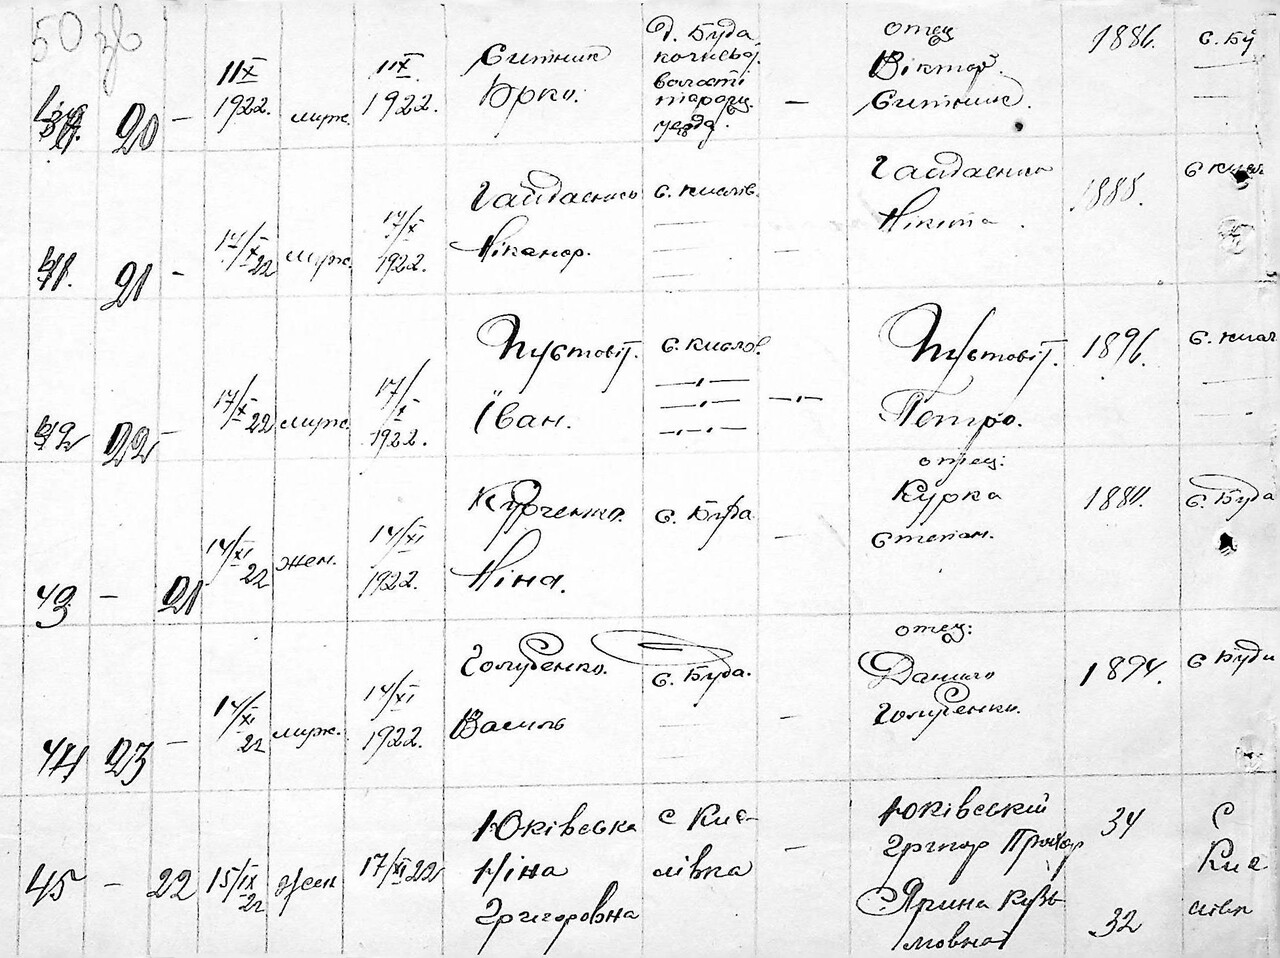 50 зв
20 - 11/X 1922. муж. 11/X. 1922. Ситник Юрко. д. Буда
волості
уезда. - отец Віктор. Ситник. 1886. с. Бу
41. 21 - 14/X 22 муж. 14/XI 1922. Гайдаєнко Ніканор. с. Кислів. - Гайдаєнко Нікита. 1885. с Кисл
42 22 - 17/X 22 муж. 17/X 1922. Пустовіт. Іван. с. Кислов. -"- -"- -"- Пустовіт. Петро. 1896. с. Кисл
43 - 21 14/XI 22 жен. 14/XI 1922. Курченко. Ніна. с. Буда - отец: Курка Степан. с. Буда
44 23 - 14/XI 22 муж. 14/XI 1922. Голубенко. Василь с. Буда. - отец: Данило Голубенко. 1894. с Буди
45 - 22 15/IX 22 Жен 17/XI 22 Юківська Ніна Григоровна с Кис-
лівка - Юківський Григор Прохор 34 С Кис
Ярина Кузь-
мовна 32 лівк